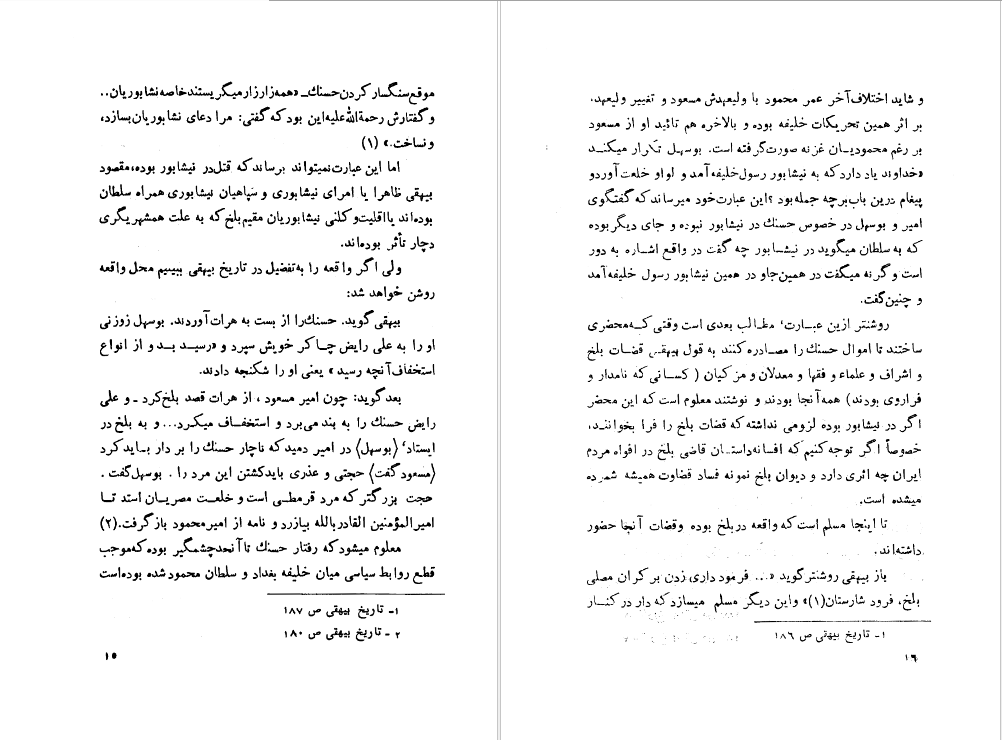 موقع سنگسار کردن حسنك ـ «همه زار زار میگریستند خاصه نشابوریان..
و گفتارش رحمة‌الله علیه این بود که گفتی: مرا دعای نشابوریان بسازد،
و نساخت.» (۱)
اما این عبارت نمیتواند برساند که قتل در نیشابور بوده، مقصود
بیهقی ظاهرا یا امرای نیشابوری و سپاهیان نیشابوری همراه سلطان
بوده‌اند یا اقلیت و کلنی نیشابوریان مقیم بلخ که به علت همشهریگری
دچار تأثر بوده‌اند.
ولی اگر واقعه را به تفضیل در تاریخ بیهقی ببینیم محل واقعه
روشن خواهد شد:
بیهقی گوید، حسنك را از بست به هرات آوردند. بوسهل زوزنی
او را به علی رایض چاکر خویش سپرد و «رسید بدو از انواع
استخفاف آنچه رسید» یعنی او را شکنجه دادند.
بعد گوید: چون امیر مسعود، از هرات قصد بلخ کرد ـ و علی
رایض حسنك را به بند می‌برد و استخفاف میکرد... و به بلخ در
ایستاد، (بوسهل) در امیر دمید که ناچار حسنك را بر دار باید کرد
(مسعود گفت) حجتی و عذری باید کشتن این مرد را. بوسهل گفت.
حجت بزرگتر که مرد قرمطی است و خلعت مصریان استد تا
امیرالمؤمنین القادر بالله بیازرد و نامه از امیر محمود باز گرفت.(۲)
معلوم میشود که رفتار حسنك تا آنحد چشمگیر بوده که موجب
قطع روابط سیاسی میان خلیفه بغداد و سلطان محمود شده بوده است
۱ـ تاریخ بیهقی ص ۱۸۷
۲ ـ تاریخ بیهقی ص ۱۸۰
۱۵
و شاید اختلاف آخر عمر محمود با ولیعهدش مسعود و تغییر ولیعهد،
بر اثر همین تحریکات خلیفه بوده و بالاخره هم تائید او از مسعود
بر رغم محمودیان غزنه صورت گرفته است. بوسهل تکرار میکند
«خداوند یاد دارد که به نیشابور رسول خلیفه آمد و لوا و خلعت آورد و
پیغام درین باب بر چه جمله بود؟ این عبارت خود میرساند که گفتگوی
امیر و بوسهل در خصوص حسنك در نیشابور نبوده و جای دیگر بوده
که به سلطان میگوید در نیشابور چه گفت در واقع اشاره به دور
است وگرنه میگفت در همین جا و در همین نیشابور رسول خلیفه آمد
و چنین گفت.
روشنتر ازین عبارت، مطالب بعدی است وقتی که محضری
ساختند تا اموال حسنك را مصادره کنند به قول بیهقی قضات بلخ
و اشراف و علماء و فقها و معدلان و مزکیان ( کسانی که نامدار و
فراروی بودند) همه آنجا بودند و نوشتند معلوم است که این محضر
اگر در نیشابور بوده لزومی نداشته که قضات بلخ را فرا بخوانند،
خصوصاً اگر توجه کنیم که افسانه داستان قاضی بلخ در افواه مردم
ایران چه اثری دارد و دیوان بلخ نمونه فساد قضاوت همیشه شمرده
میشده است.
تا اینجا مسلم است که واقعه در بلخ بوده وقضات آنجا حضور
داشته‌اند.
باز بیهقی روشنتر گوید «... فرمود داری زدن بر کران مصلی
بلخ، فرود شارستان(۱)» و این دیگر مسلم میسازد که دار در کنار
۱ـ تاریخ بیهقی ص ۱۸۶
۱۶